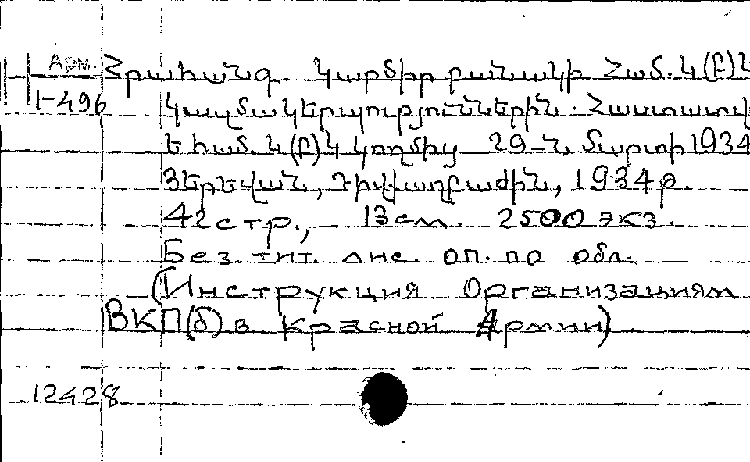 Арм. Հրահանգ Կարմիր բանակի Համ. Կ(բ)Կ
1-496 Կազմակերպություններին. Հաստատվ
է Համ. Կ(բ)Կ կողմից 29-ն մարտի 1934
Յերևան, Դիվաղբաժին, 1934թ.
42 стр., 13 см. 2500 экз.
Без тит. лис. оп. по обл.
(Инструкция Организациям
ВКП(б) в Красной Армии)
12428